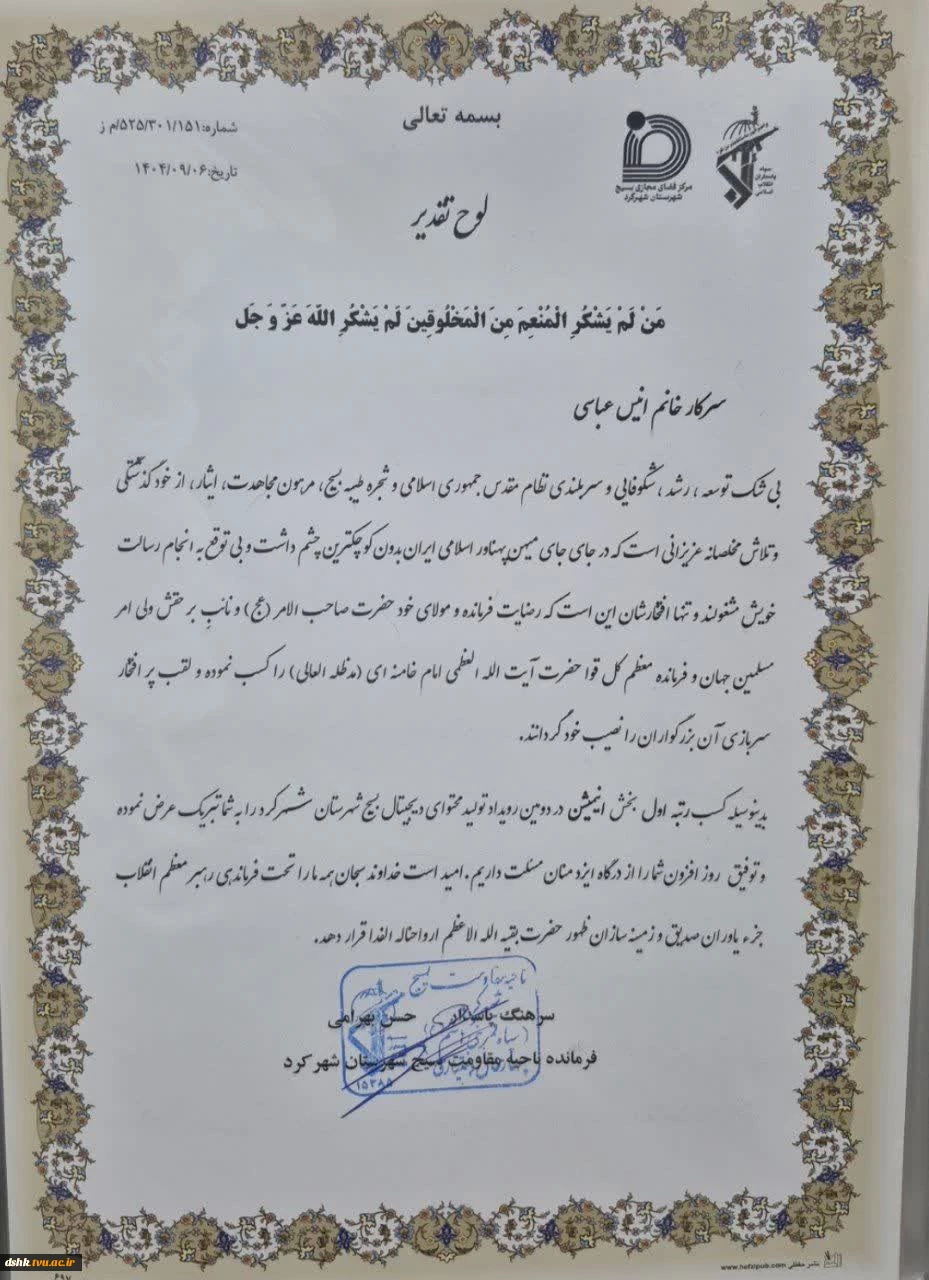 بسمه تعالی
شماره:۵۲۵/۳۰۱/۱۵۱/م ز
تاریخ:۱۴۰۴/۰۹/۰۶
سپاه
پاسداران
انقلاب
اسلامی
مرکز فضای مجازی بسیج
شهرستان شهرکرد
لوح تقدیر
مَنْ لَمْ یَشْکُرِ الْمُنْعِمَ مِنَ الْمَخْلُوقِینَ لَمْ یَشْکُرِ اللّهَ عَزَّ وَ جَل
سرکار خانم انیس عباسی
بی شک توسعه ، رشد ، شکوفایی و سربلندی نظام مقدس جمهوری اسلامی و شجره طیبه بسیج، مرهون مجاهدت، ایثار، از خود گذشتگی
و تلاش مخلصانه عزیزانی است که در جای جای میهن پهناور اسلامی ایران بدون کوچکترین چشم داشت و بی توقع به انجام رسالت
خویش مشغولند و تنها افتخارشان این است که رضایت فرمانده و مولای خود حضرت صاحب الامر (عج) و نائبِ بر حقش ولی امر
مسلمین جهان و فرمانده معظم کل قوا حضرت آیت الله العظمی امام خامنه ای (مدظله العالی) را کسب نموده و لقب پر افتخار
سربازی آن بزرگواران را نصیب خود گردانند.
بدینوسیله کسب رتبه اول بخش انیمیشن در دومین رویداد تولید محتوای دیجیتال بسیج شهرستان شهرکرد را به شما تبریک عرض نموده
و توفیق روز افزون شما را از درگاه ایزد منان مسئلت داریم. امید است خداوند سبحان همه ما را تحت فرماندهی رهبر معظم انقلاب
جزء یاوران صدیق و زمینه سازان ظهور حضرت بقیه الله الاعظم ارواحناله الفدا قرار دهد.
ناحیه مقاومت بسیج
سرهنگ پاسدار حسن بهرامی
فرمانده ناحیه مقاومت بسیج شهرستان شهرکرد
۱۵۳۸۵
نشر حفظی www.hefzipub.com
dshk.tvu.ac.ir
۶۹۷